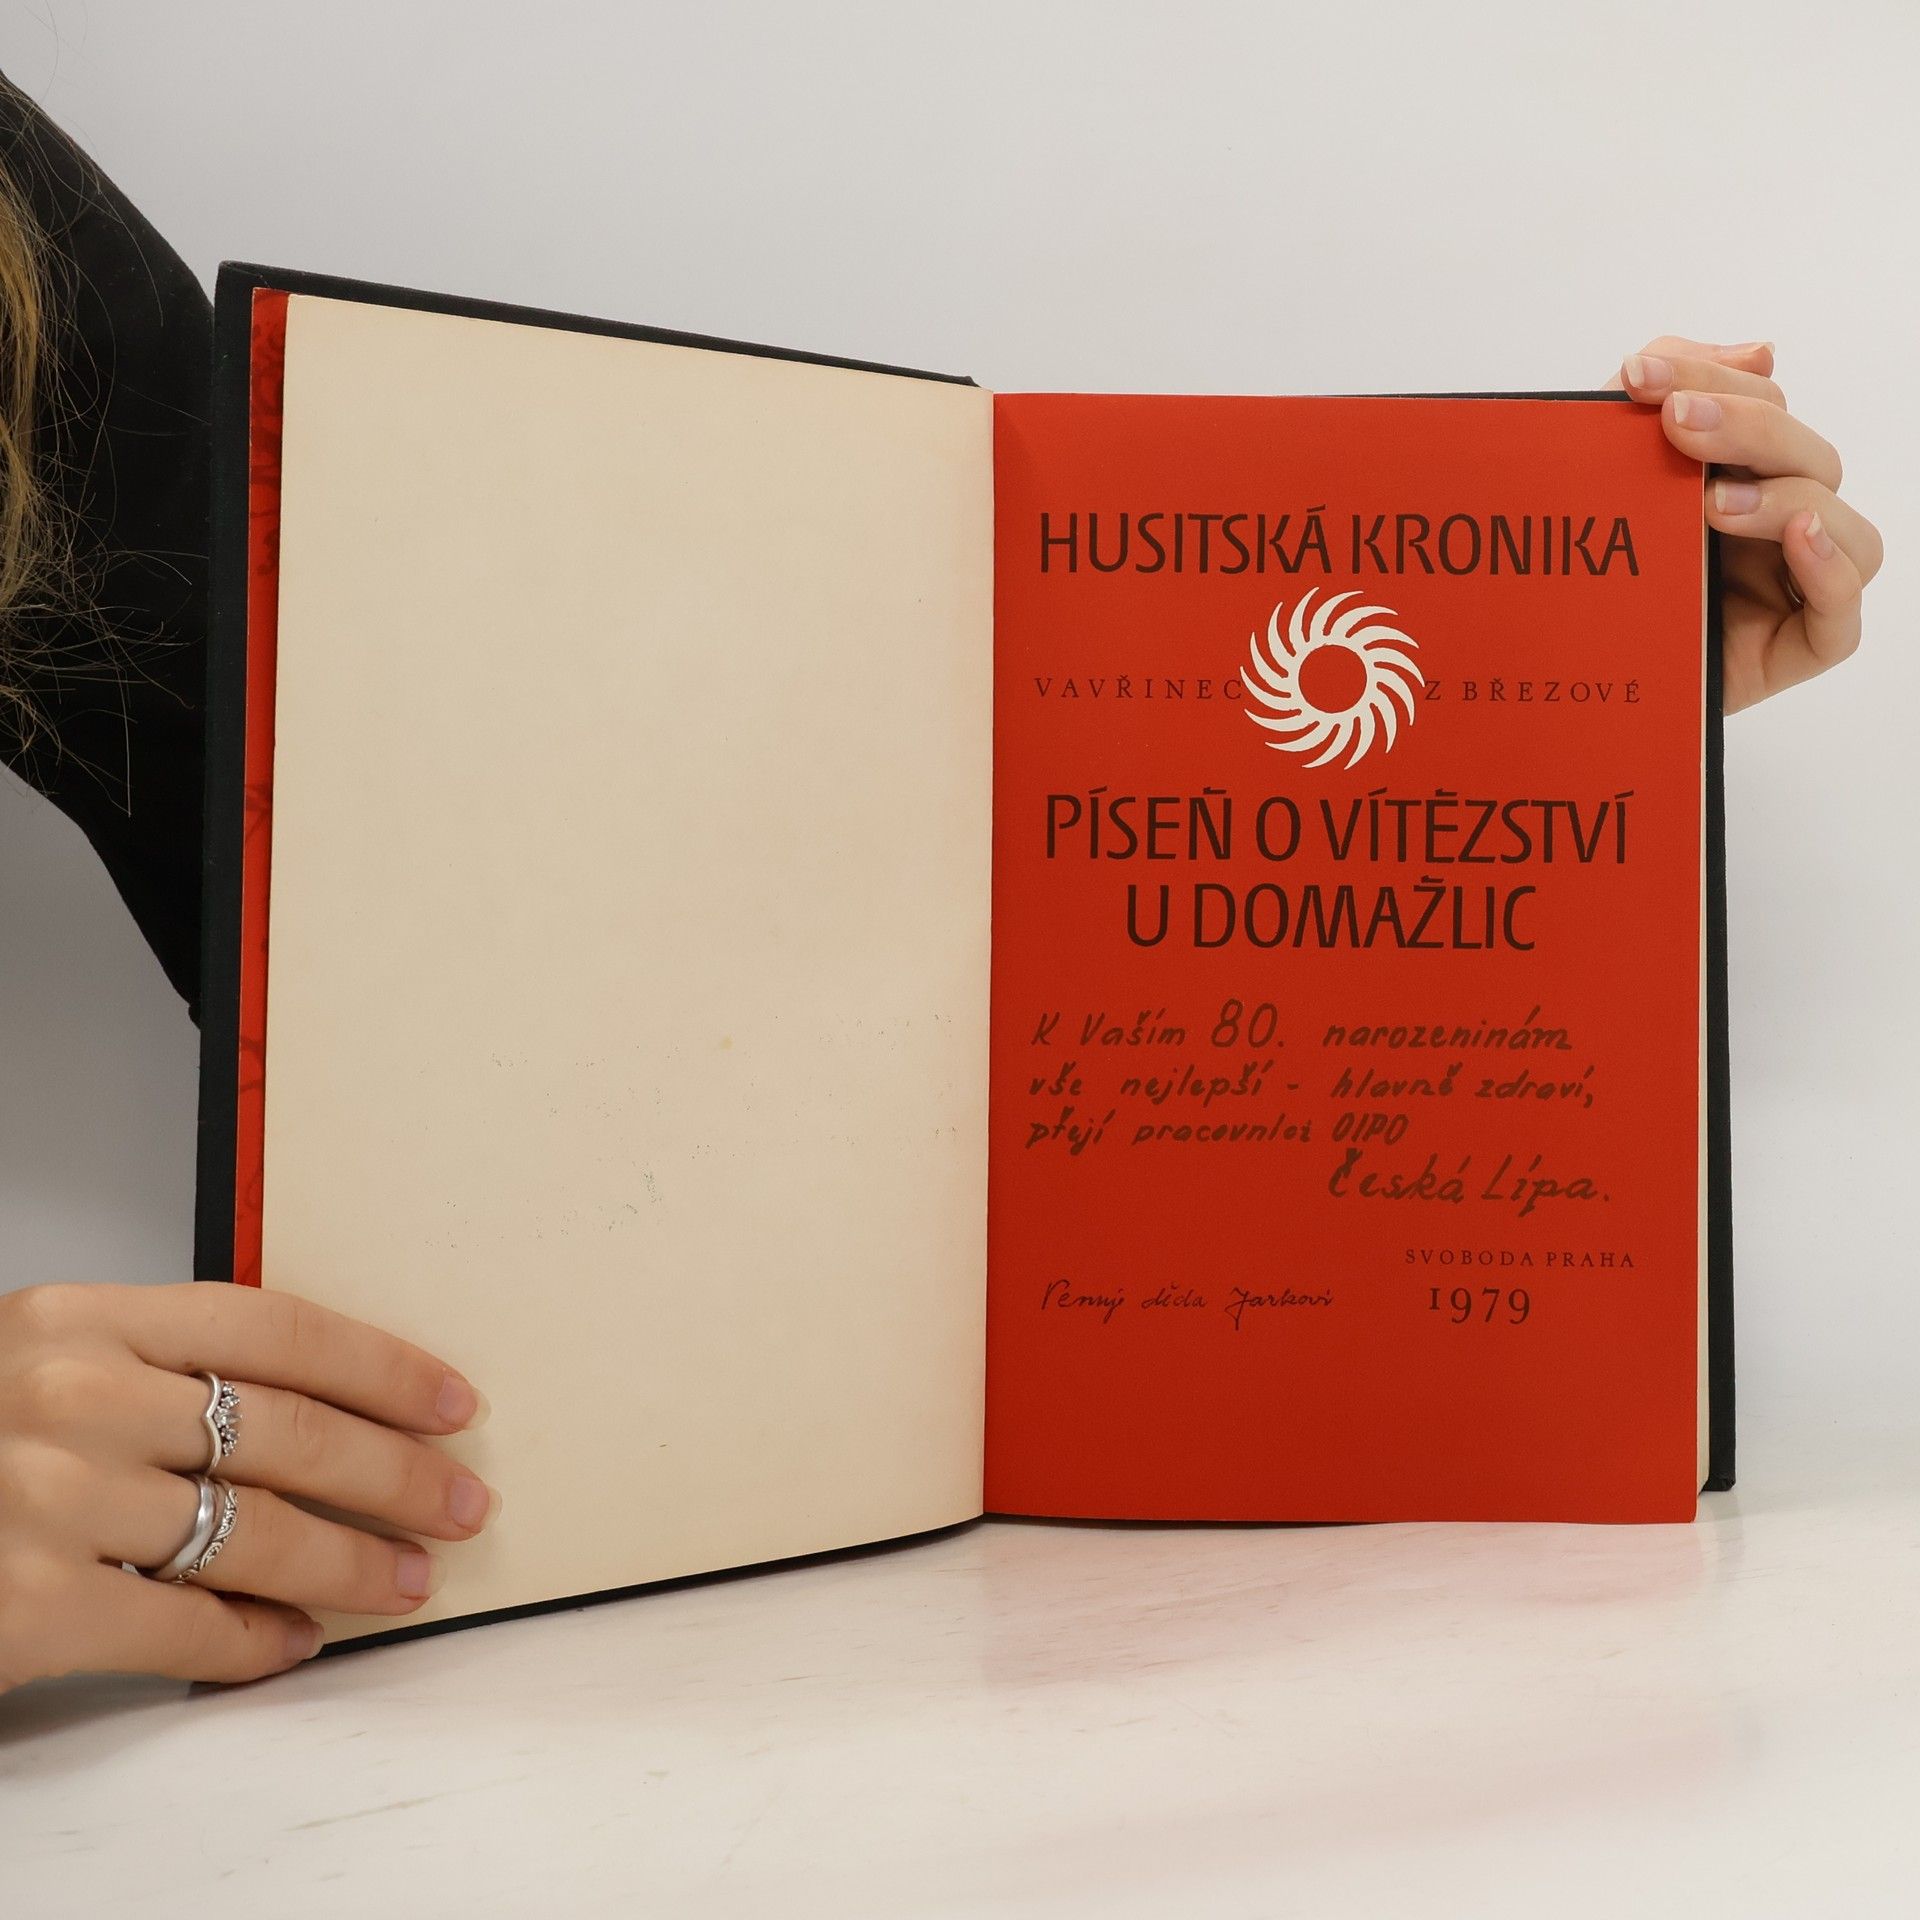 HUSITSKÁ KRONIKA
VAVŘINEC Z BŘEZOVÉ
PÍSEŇ O VÍTĚZSTVÍ
U DOMAŽLIC
K Vaším 80. narozeninám
vše nejlepší - hlavně zdraví,
přejí pracovníci OIPO
Česká Lípa.
SVOBODA PRAHA
1979
Venuje děda Jarkovi